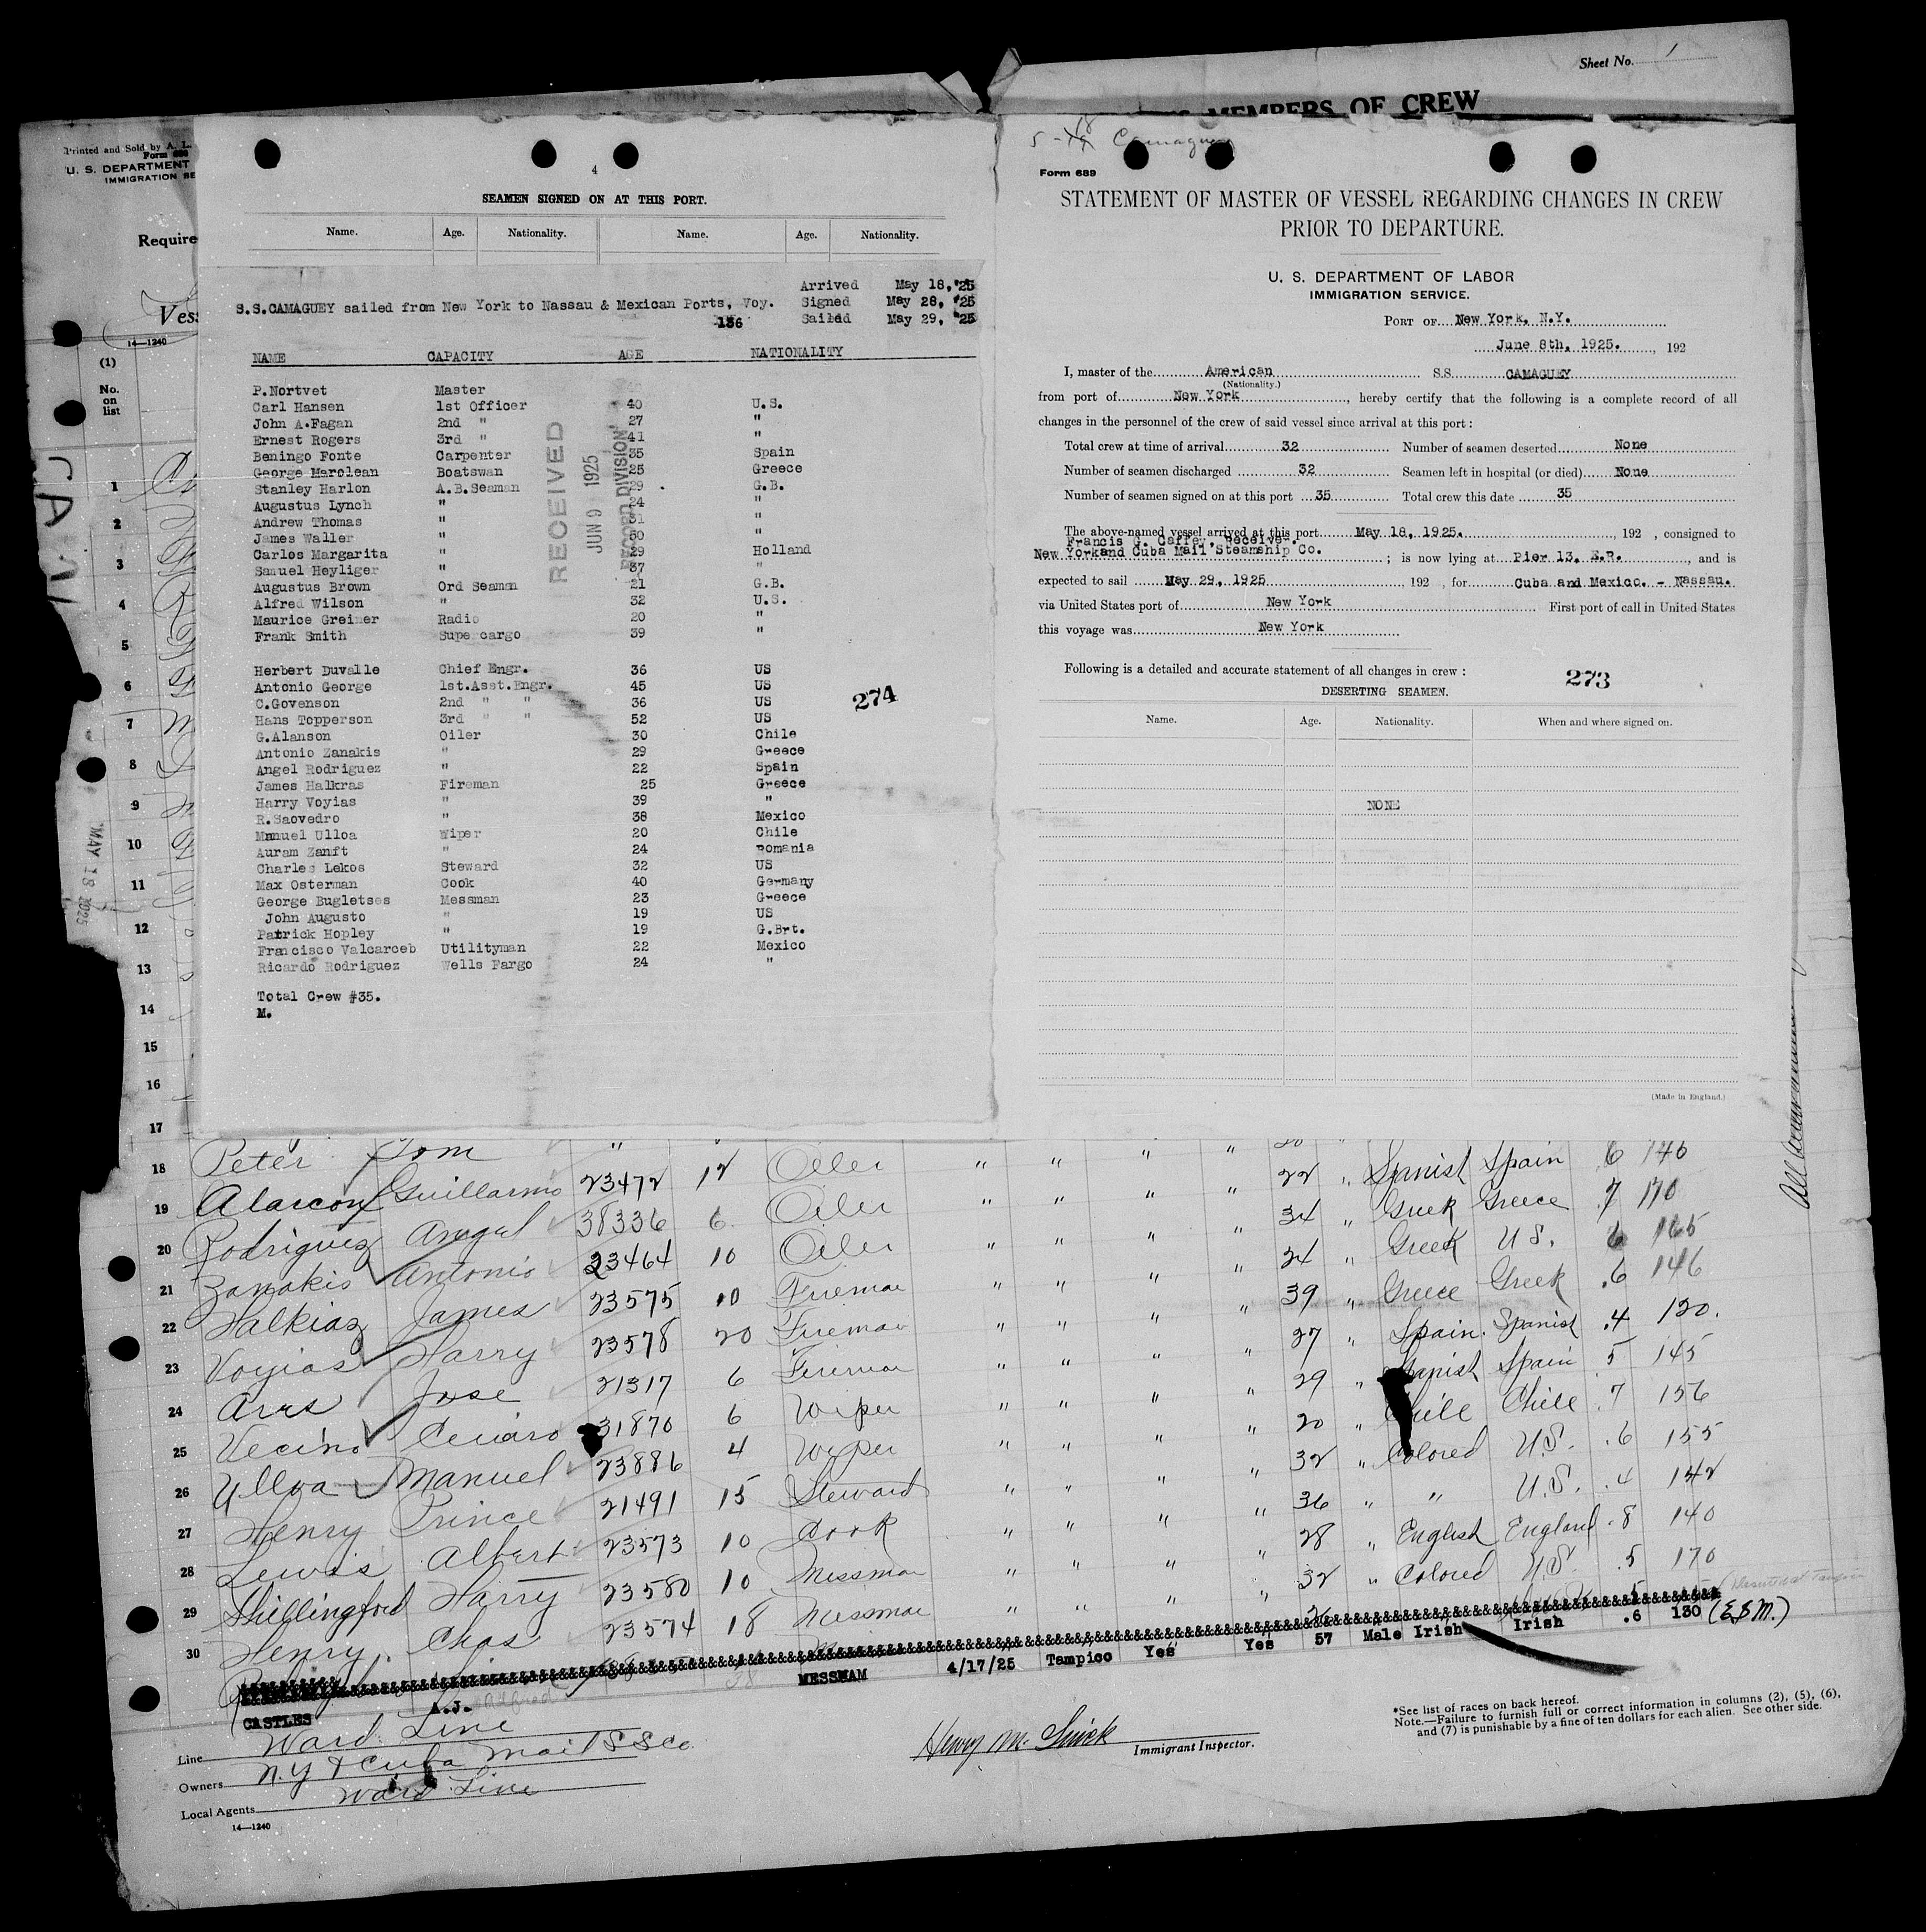 Sheet No. 1
MEMBERS OF CREW
Printed and Sold by A. L.
Form 689
U. S. DEPARTMENT
IMMIGRATION SE
Require
Vess
14—1240
(1)
No.
on
list
MAY 18 1925
4
SEAMEN SIGNED ON AT THIS PORT.
Name. Age. Nationality. Name. Age. Nationality.
Arrived May 18, '25
S.S.CAMAGUEY sailed from New York to Nassau & Mexican Ports, Voy. Signed May 28, '25
136 Sailed May 29, '25
NAME CAPACITY AGE NATIONALITY
P.Nortvet Master
Carl Hansen 1st Officer 40 U.S.
John A.Fagan 2nd " 27 "
Ernest Rogers 3rd " 41 "
Beningo Fonte Carpenter 35 Spain
George Marolean Boatswan 25 Greece
Stanley Harlon A.B.Seaman 29 G.B.
Augustus Lynch " 24 "
Andrew Thomas " 31 "
James Waller " 30 "
Carlos Margarita " 29 Holland
Samuel Heyliger " 37 "
Augustus Brown Ord Seaman 21 G.B.
Alfred Wilson " 32 U.S.
Maurice Greiner Radio 20 "
Frank Smith Supercargo 39 "
Herbert Duvalle Chief Engr. 36 US
Antonio George 1st.Asst.Engr. 45 US
C.Govenson 2nd " " 36 US
Hans Topperson 3rd " " 52 US
G.Alanson Oiler 30 Chile
Antonio Zanakis " 29 Greece
Angel Rodriguez " 22 Spain
James Halkras Fireman 25 Greece
Harry Voyias " 39 "
R.Saovedro " 38 Mexico
Manuel Ulloa Wiper 20 Chile
Auram Zanft " 24 Romania
Charles Lekos Steward 32 US
Max Osterman Cook 40 Germany
George Bugletses Messman 23 Greece
John Augusto " 19 US
Patrick Hopley " 19 G.Brt.
Francisco Valcarceb Utilityman 22 Mexico
Ricardo Rodriguez Wells Fargo 24 "
Total Crew #35.
M.
RECEIVED
JUN 9 1925
RECORD DIVISION
274
5-18 Camaguey
Form 689
STATEMENT OF MASTER OF VESSEL REGARDING CHANGES IN CREW
PRIOR TO DEPARTURE.
U. S. DEPARTMENT OF LABOR
IMMIGRATION SERVICE.
PORT OF New York, N.Y.
June 8th, 1925. , 192
I, master of the American S.S. CAMAGUEY
(Nationality.)
from port of New York , hereby certify that the following is a complete record of all
changes in the personnel of the crew of said vessel since arrival at this port :
Total crew at time of arrival 32 Number of seamen deserted None
Number of seamen discharged 32 Seamen left in hospital (or died) None
Number of seamen signed on at this port 35 Total crew this date 35
The above-named vessel arrived at this port May 18, 1925. , 192 , consigned to
Francis G. Caffey, Receiver.
New York and Cuba Mail Steamship Co. ; is now lying at Pier 13, E.R. , and is
expected to sail May 29, 1925 , 192 , for Cuba and Mexico. - Nassau.
via United States port of New York First port of call in United States
this voyage was New York
Following is a detailed and accurate statement of all changes in crew :
273
DESERTING SEAMEN.
Name. Age. Nationality. When and where signed on.
NONE
(Made in England.)
1
2
3
4
5
6
7
8
9
10
11
12
13
14
15
16
17
18 Peter Tom "
19 Alarcon Guillarmo 23472 12 Oiler " " " " 22 " Spanish Spain 6 140
20 Rodriguez Angel 38336 6 Oiler " " " " 34 " Greek Greece 7 170
21 Zanakis Antonio 23464 10 Oiler " " " " 24 " Greek U.S. 6 165
22 Halkias James 23575 10 Fireman " " " " 39 " Greece Greek .6 146
23 Voyias Harry 23578 20 Fireman " " " " 27 " Spain. Spanish .4 120.
24 Ares Jose 21317 6 Fireman " " " " 29 " Spanish Spain 5 145
25 Vecino 31870 6 Wiper " " " " 20 " Chile Chile .7 156
26 Ulloa Manuel 23886 4 Wiper " " " " 32 " Colored U.S. .6 155
27 Henry Prince 21491 15 Steward " " " " 36 " " U.S. .4 142
28 Lewis Albert 23573 10 Cook " " " " 28 " English England .8 140
29 Shillingford Harry 23580 10 Messman " " " " 32 " Colored U.S. .5 170
30 Henry Chas 23574 18 Messman
CASTLES A.J. Alfred MESSMAM 4/17/25 Tampico Yes Yes 57 Male Irish Irish .6 130 (E.S.M.)
Line Ward Line
Owners N.Y & Cuba Mail SS Co
Local Agents Ward Line
14—1240
Immigrant Inspector.
*See list of races on back hereof.
Note.—Failure to furnish full or correct information in columns (2), (5), (6),
and (7) is punishable by a fine of ten dollars for each alien. See other side.